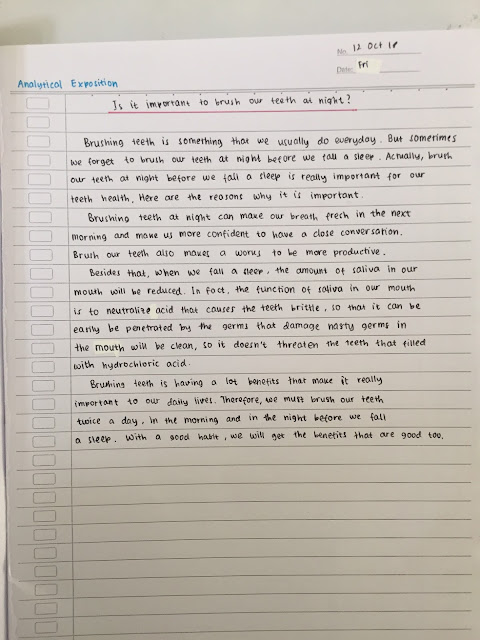 No. 12 Oct 18
Date: Fri
Analytical Exposition
Is it important to brush our teeth at night?
Brushing teeth is something that we usually do everyday. But sometimes
we forget to brush our teeth at night before we fall a sleep. Actually, brush
our teeth at night before we fall a sleep is really important for our
teeth health. Here are the reasons why it is important.
Brushing teeth at night can make our breath fresh in the next
morning and make us more confident to have a close conversation.
Brush our teeth also makes a works to be more productive.
Besides that, when we fall a sleep, the amount of saliva in our
mouth will be reduced. In fact, the function of saliva in our mouth
is to neutralize acid that causes the teeth brittle, so that it can be
easily be penetrated by the germs that damage nasty germs in
the mouth will be clean, so it doesn't threaten the teeth that filled
with hydrochloric acid.
Brushing teeth is having a lot benefits that make it really
important to our daily lives. Therefore, we must brush our teeth
twice a day, in the morning and in the night before we fall
a sleep. With a good habit, we will get the benefits that are good too.